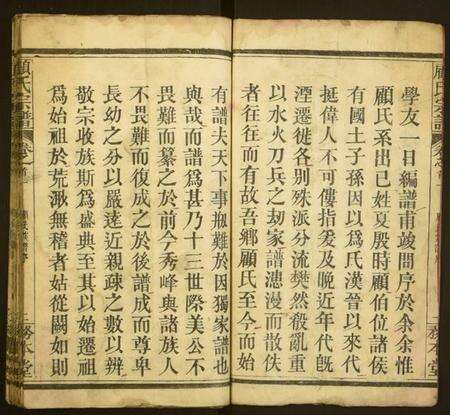 學友一日編譜甫竣問序於余余惟
顧氏系出己姓夏殷時顧伯位諸侯
有國土子孫因以爲氏漢晉以來代
挺偉人不可僂指爰及晚近年代旣
湮遷徙各別殊派分流樊然殽亂重
以水火刀兵之刼家譜漶漫而散佚
者往往而有故吾鄉顧氏至今而始
有譜夫天下事刱難於因獨家譜也
與哉而譜爲甚乃十三世際美公不
畏難而纂之於前今秀峰與諸族人
不畏難而復成之於後譜成而尊卑
長幼之分以嚴遠近親疎之數以辨
敬宗收族斯爲盛典至其以始遷祖
爲始祖於荒渺無稽者姑從闕如則
顧氏宗譜
卷之首
務本堂